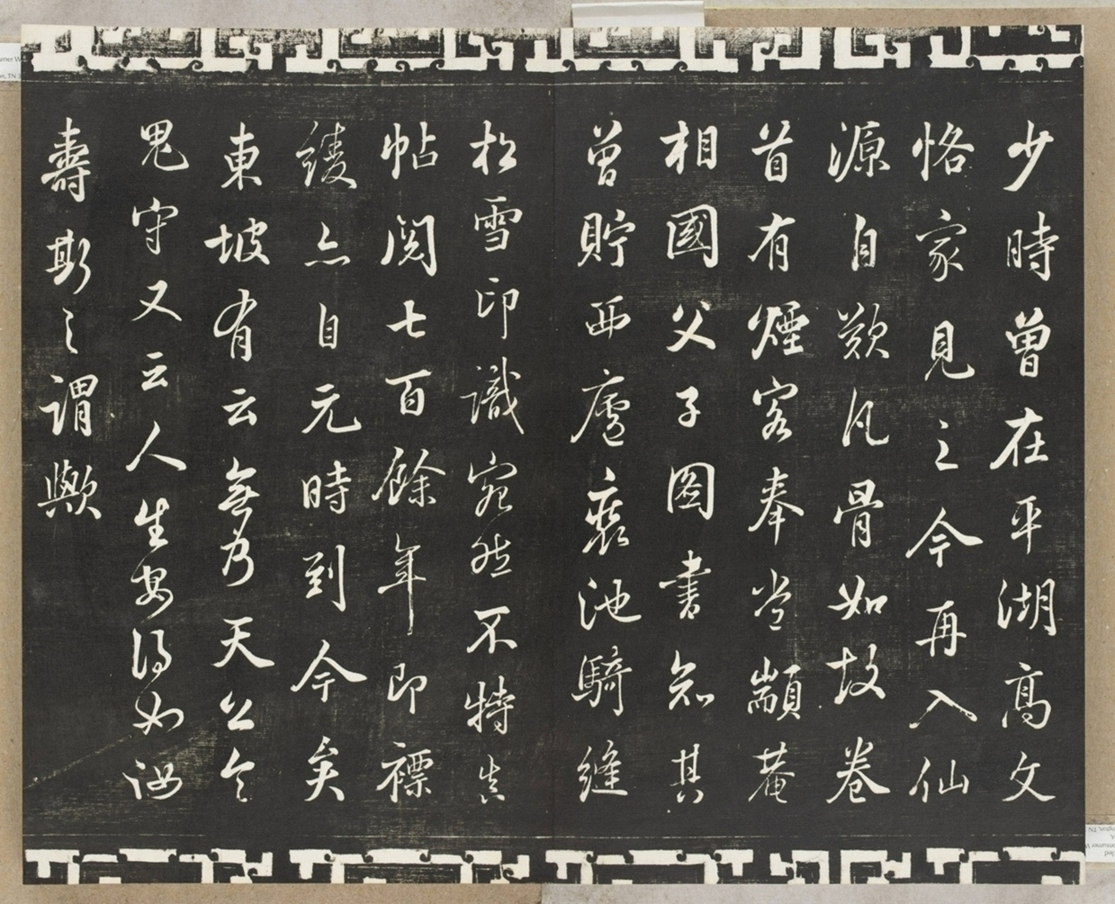 少時曾在平湖高文
恪家見之今再入仙
源自歎凡骨如故卷
首有煙客奉常顓菴
相國父子圖書知其
曾貯西廬池騎縫
松雪印識宛然不特真
帖閱七百餘年即褾
綾亦自元時到今矣
東坡有云無乃天公令
鬼守又云人生安得如汝
壽斯之謂歟